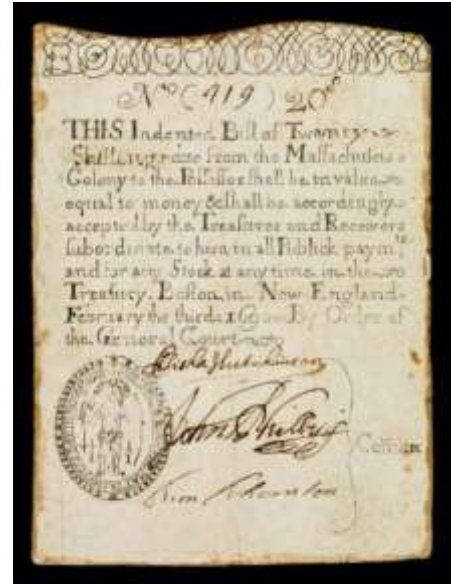 No (919) 20s
THIS Indented Bill of Twenty
Shillings due from the Massachusets
Colony to the Possessor shall be in value
equal to money & shall be accordingly
accepted by the Treasurer and Receivers
subordinate to him in all Publick paymts
and for any Stock at any time in the
Treasury. Boston in New-England
February the third 1690 By Order of
the General Court
Elisha Hutchinson
John Phillips
Comitee
Tim Thornton